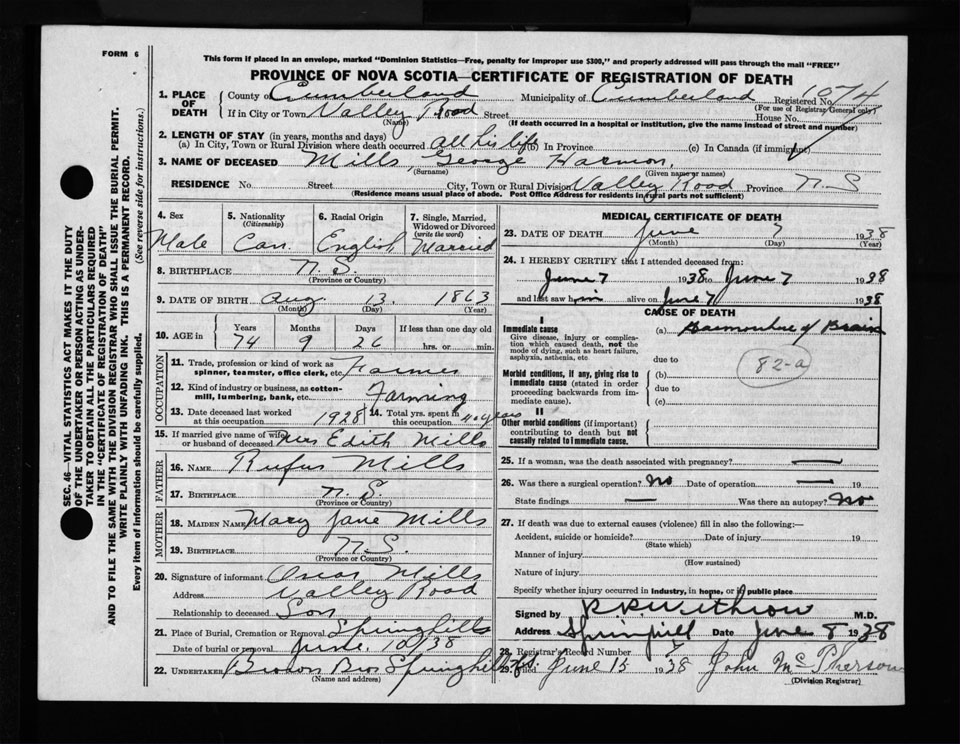 FORM 6
This form if placed in an envelope, marked "Dominion Statistics—Free, penalty for improper use $300," and properly addressed will pass through the mail "FREE"
PROVINCE OF NOVA SCOTIA—CERTIFICATE OF REGISTRATION OF DEATH
1. PLACE OF DEATH
County of Cumberland Municipality of Cumberland Registered No. 1074
(For use of Registrar General only)
If in City or Town Valley Road Street House No.
(Name) (If death occurred in a hospital or institution, give the name instead of street and number)
2. LENGTH OF STAY (in years, months and days)
(a) In City, Town or Rural Division where death occurred all his life (b) In Province (c) In Canada (if immigrant)
3. NAME OF DECEASED Mills, George Harmon,
(Surname) (Given name or names)
RESIDENCE No. Street City, Town or Rural Division Valley Road Province N.S
(Residence means usual place of abode. Post Office Address for residents in rural parts not sufficient)
4. Sex Male
5. Nationality (Citizenship) Can.
6. Racial Origin English
7. Single, Married, Widowed or Divorced (write the word) Married
8. BIRTHPLACE N.S.
(Province or Country)
9. DATE OF BIRTH Aug 13. 1863
(Month) (Day) (Year)
10. AGE in Years Months Days If less than one day old
74 9 26 hrs. or min.
OCCUPATION
11. Trade, profession or kind of work as spinner, teamster, office clerk, etc. Farmer
12. Kind of industry or business, as cotton-mill, lumbering, bank, etc. Farming
13. Date deceased last worked at this occupation 1928
14. Total yrs. spent in this occupation years
15. If married give name of wife or husband of deceased Mrs Edith Mills
FATHER
16. NAME Rufus Mills
17. BIRTHPLACE N.S.
(Province or Country)
MOTHER
18. MAIDEN NAME Mary Jane Mills
19. BIRTHPLACE N.S.
(Province or Country)
20. Signature of informant Oscar Mills
Address Valley Road
Relationship to deceased Son
21. Place of Burial, Cremation or Removal Springhill
Date of burial or removal June 10/38
22. UNDERTAKER Brown Bros Springhill NS.
(Name and address)
MEDICAL CERTIFICATE OF DEATH
23. DATE OF DEATH June 7 1938
(Month) (Day) (Year)
24. I HEREBY CERTIFY that I attended deceased from
June 7 1938 to June 7 1938
and last saw him alive on June 7 1938
CAUSE OF DEATH
I
Immediate cause (a) Haemorrhage of Brain
Give disease, injury or complication which caused death, not the mode of dying, such as heart failure, asphyxia, asthenia, etc.
due to
Morbid conditions, if any, giving rise to immediate cause (stated in order proceeding backwards from immediate cause).
(b) 82-a
due to
(c)
II
Other morbid conditions (if important) contributing to death but not causally related to immediate cause.
25. If a woman, was the death associated with pregnancy? —
26. Was there a surgical operation? No Date of operation — 19
State findings — Was there an autopsy? No
27. If death was due to external causes (violence) fill in also the following:—
Accident, suicide or homicide? Date of injury 19
(State which)
Manner of injury
(How sustained)
Nature of injury
Specify whether injury occurred in industry, in home, or in public place
Signed by R.R. Withrow M.D.
Address Springhill Date June 8 1938
28. Registrar's Record Number 7
29. Filed June 15 1938 John McPherson
(Division Registrar)
SEC. 46—VITAL STATISTICS ACT MAKES IT THE DUTY
OF THE UNDERTAKER OR PERSON ACTING AS UNDER-
TAKER TO OBTAIN ALL THE PARTICULARS REQUIRED
IN THE "CERTIFICATE OF REGISTRATION OF DEATH"
AND TO FILE THE SAME WITH THE DIVISION REGISTRAR WHO SHALL ISSUE THE BURIAL PERMIT.
WRITE PLAINLY WITH UNFADING INK. THIS IS A PERMANENT RECORD.
Every item of information should be carefully supplied. (See reverse side for instructions.)